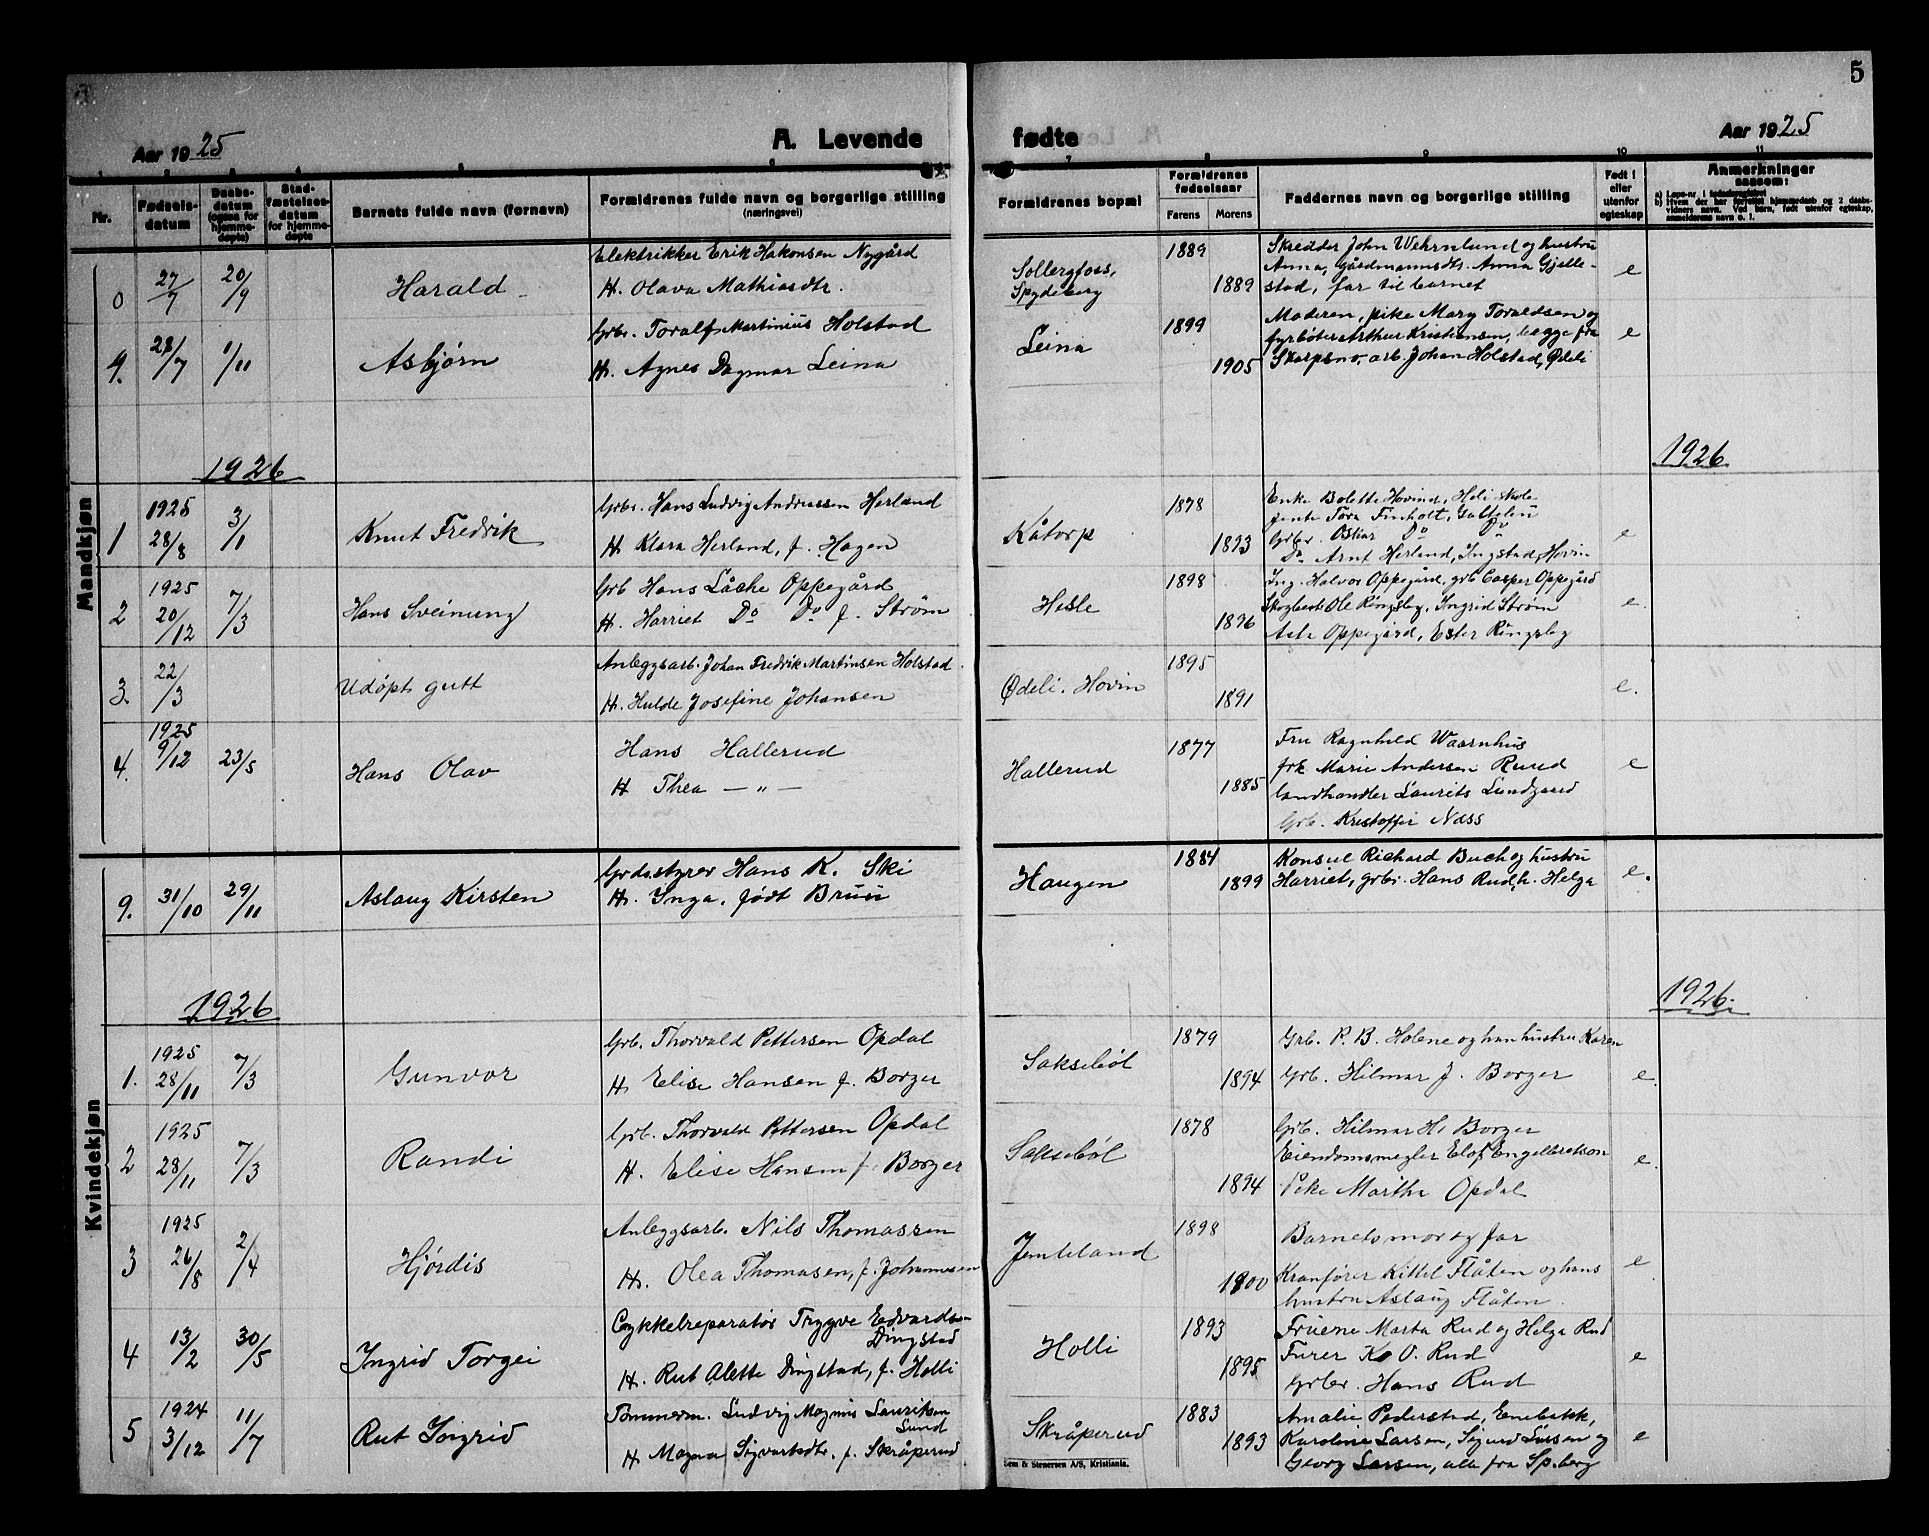 5
Aar 1925
A. Levende
fødte
Aar 1925
1 2 3 4 5 6
7 8 9 10 11
Nr.
Fødsels-
datum
Daabs-
datum
(ogsaa for
hjemme-
døpte)
Stad-
fæstelses-
datum
for hjemme-
døpte
Barnets fulde navn (fornavn)
Forældrenes fulde navn og borgerlige stilling
(næringsvei)
Forældrenes bopæl
Forældrenes
fødselsaar
Farens Morens
Faddernes navn og borgerlige stilling
Født i
eller
utenfor
egteskap
Anmerkninger
saasom:
Mandkjøn
27/7 20/9 Harald
Elektrikker Erik Hakonsen Nygård
H. Olava Mathiasdtr.
Sollergfoss,
Spydeberg
1889
1889
Skredder John Wehrnlund og hustru
Anna, Gårdmannsdtr. Anna Gjelle-
stad, far til barnet
e
9. 28/7 1/11 Asbjørn
Grbr. Toralf Martinius Holstad
H. Agnes Dagmar Leina
Leina
1899
1905
Moderen, pike Mary Toraldsen og
fyrbøter Arthur Kristiansen, begge fra
Skarpsno, arb. Johan Holstad, Ødeli
e
1926
1926
1 1925 28/8 3/1 Knut Fredrik
Grbr. Hans Ludvig Andreassen Herland
H Klara Herland, f. Hagen
Kåtorp
1878
1893
Enke Bolette Hovind, Heli skole
jente Tora Finholt,
Grbr. Oskar Do Do
Do Arnt Herland, Ingstad, Hovin
e
2 1925 20/12 7/3 Hans Sveinung
Grb Hans Låche Oppegård
H. Harriet Do Do f. Strøm
Hesle
1898
1896
Ing. Halvor Oppegård, grb Casper Oppegård
Ole Ringsby, Ingrid Strøm
Asta Oppegård, Ester Ringsby
e.
3. 22/3 Udøpt gutt
Anleggsarb. Johan Fredrik Martinsen Holstad
H. Hulde Josefine Johansen
Ødeli. Hovin
1895
1891
e.
4. 1925 9/12 23/5 Hans Olav
Hans Hallerud
H Thea — „ —
Hallerud
1877
1885
Fru Ragnhild Waarnhus
frk Marie Andersen Ruud
landhandler Laurits Lundgaard
Grb. Kristoffer Næss
e
Kvindekjøn
9. 31/10 29/11 Aslaug Kirsten
Grds.styrer Hans K. Ski
H. Inga, født Bruu
Haugen
1884
1899
Konsul Richard Buch og hustru
Harriet, grbr. Hans Rud, h. Helga
e.
1926
1926.
1. 1925 28/11 7/3 Gunvor
Grb. Thorvald Pettersen Opdal
H Elise Hansen f. Borger
Saksebøl
1879
1894
Grb. P. B. Holene og han hustru Karen
Grb. Hilmar J. Borger
e.
2 1925 28/11 7/3 Randi
Grb. Thorvald Pettersen Opdal
H. Elise Hansen f. Borger
Saksebøl
1878
1894
Grb. Hilmar H. Borger
Eiendomsmegler Elof Engelbretson
Pike Martha Opdal
e.
3 1925 26/8 2/4 Hjørdis
Anleggsarb. Nils Thomassen
H. Olea Thomasen, f. Johannesen
Jemteland
1898
1900
Barnets mor og far
Kranfører Kittel Flåten og hans
hustru Aslaug Flåten.
e
4 13/2 30/5 Ingrid Torgei
Cykkelreparatør Trygve Edvardsen
Dingstad
H. Rut Alette Dingstad, f. Holli
Holli
1893
1895
Fruene Marta Rud og Helga Rud
Furer K. O. Rud
Grbr. Hans Rud
e
5 1924 3/12 11/7 Rut Ingrid
Tømmerm. Ludvig Magnus Lauriksen
Lund
H Magna Sigvartsdtr. f. Skråperud
Skråperud
1883
1893
Amalie Pederstad, Enebakk,
Karoline Larsen, Sigurd Larsen og
Georg Larsen, alle fra Sp.berg
e
Sem & Stenersen A/S, Kristiania.